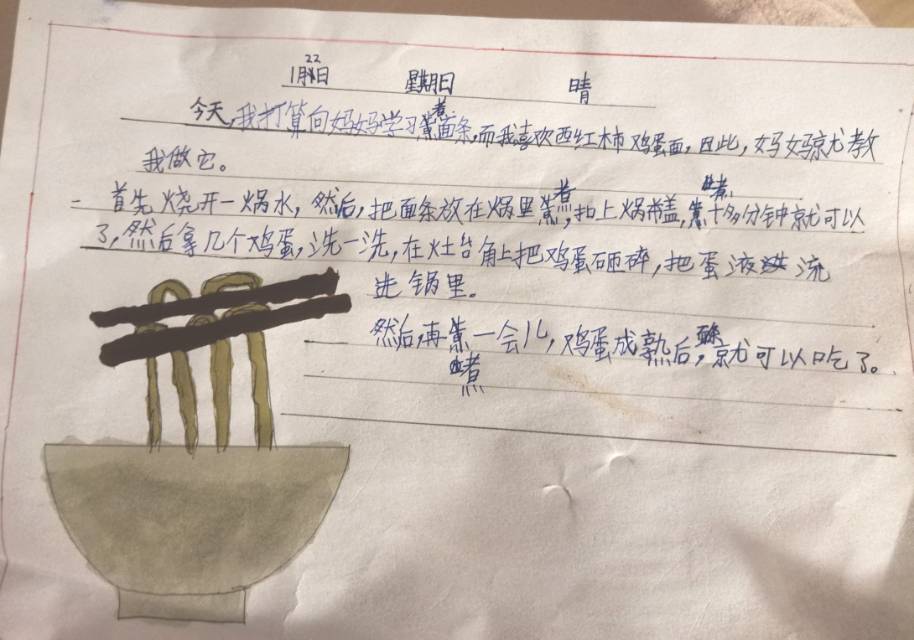 1月22日 星期日 晴
今天,我打算向妈妈学习煮面条,而我喜欢西红柿鸡蛋面,因此,妈妈就教
我做它。
首先烧开一锅水,然后,把面条放在锅里煮,扣上锅盖,煮十多分钟就可以
了,然后拿几个鸡蛋,洗一洗,在灶台角上把鸡蛋砸碎,把蛋液流
进锅里。
然后,再煮一会儿,鸡蛋成熟后,就可以吃了。